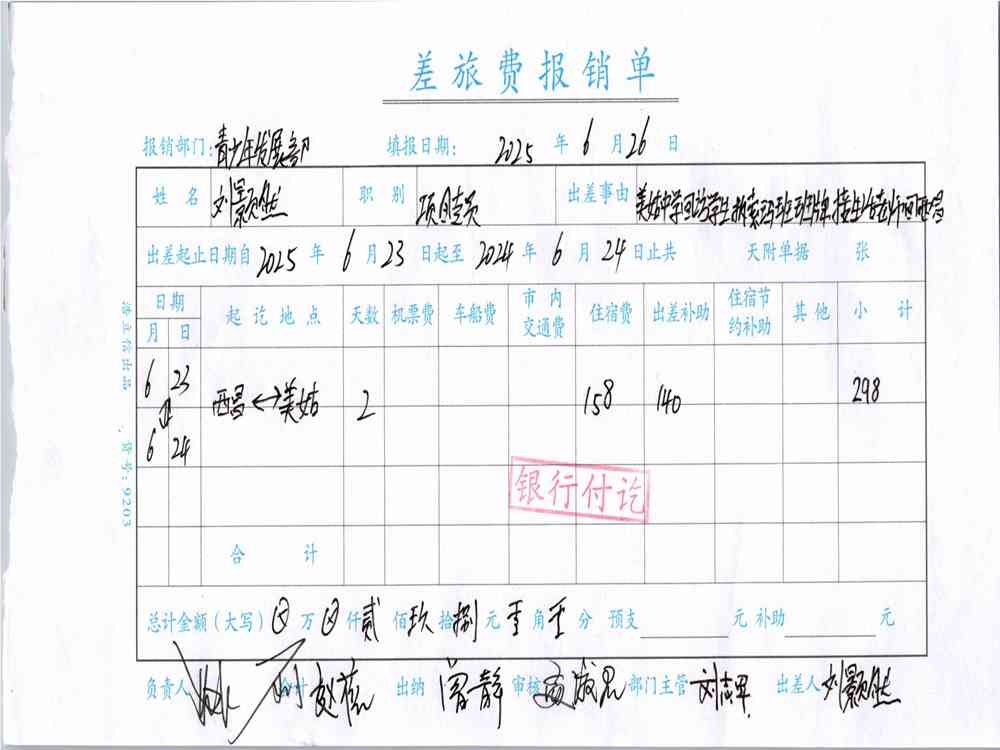 差旅费报销单
报销部门:青少年发展部 填报日期: 2025 年 6 月 26 日
姓名 刘颢然 职别 项目专员 出差事由 美姑中学回访学生
出差起止日期自 2025 年 6 月 23 日起至 2024 年 6 月 24 日止共 天附单据 张
日期 起讫地点 天数 机票费 车船费 市内交通费 住宿费 出差补助 住宿节约补助 其他 小计
月 日
6 23 西昌↔美姑 2 158 140 298
6 24
银行付讫
合计
总计金额(大写) ⊗ 万 ⊗ 仟 贰 佰 玖 拾 捌 元 零 角 零 分 预支 元 补助 元
负责人 会计 赵 出纳 静 审核 部门主管 刘志军 出差人 刘颢然
浩立信出品 货号:9203